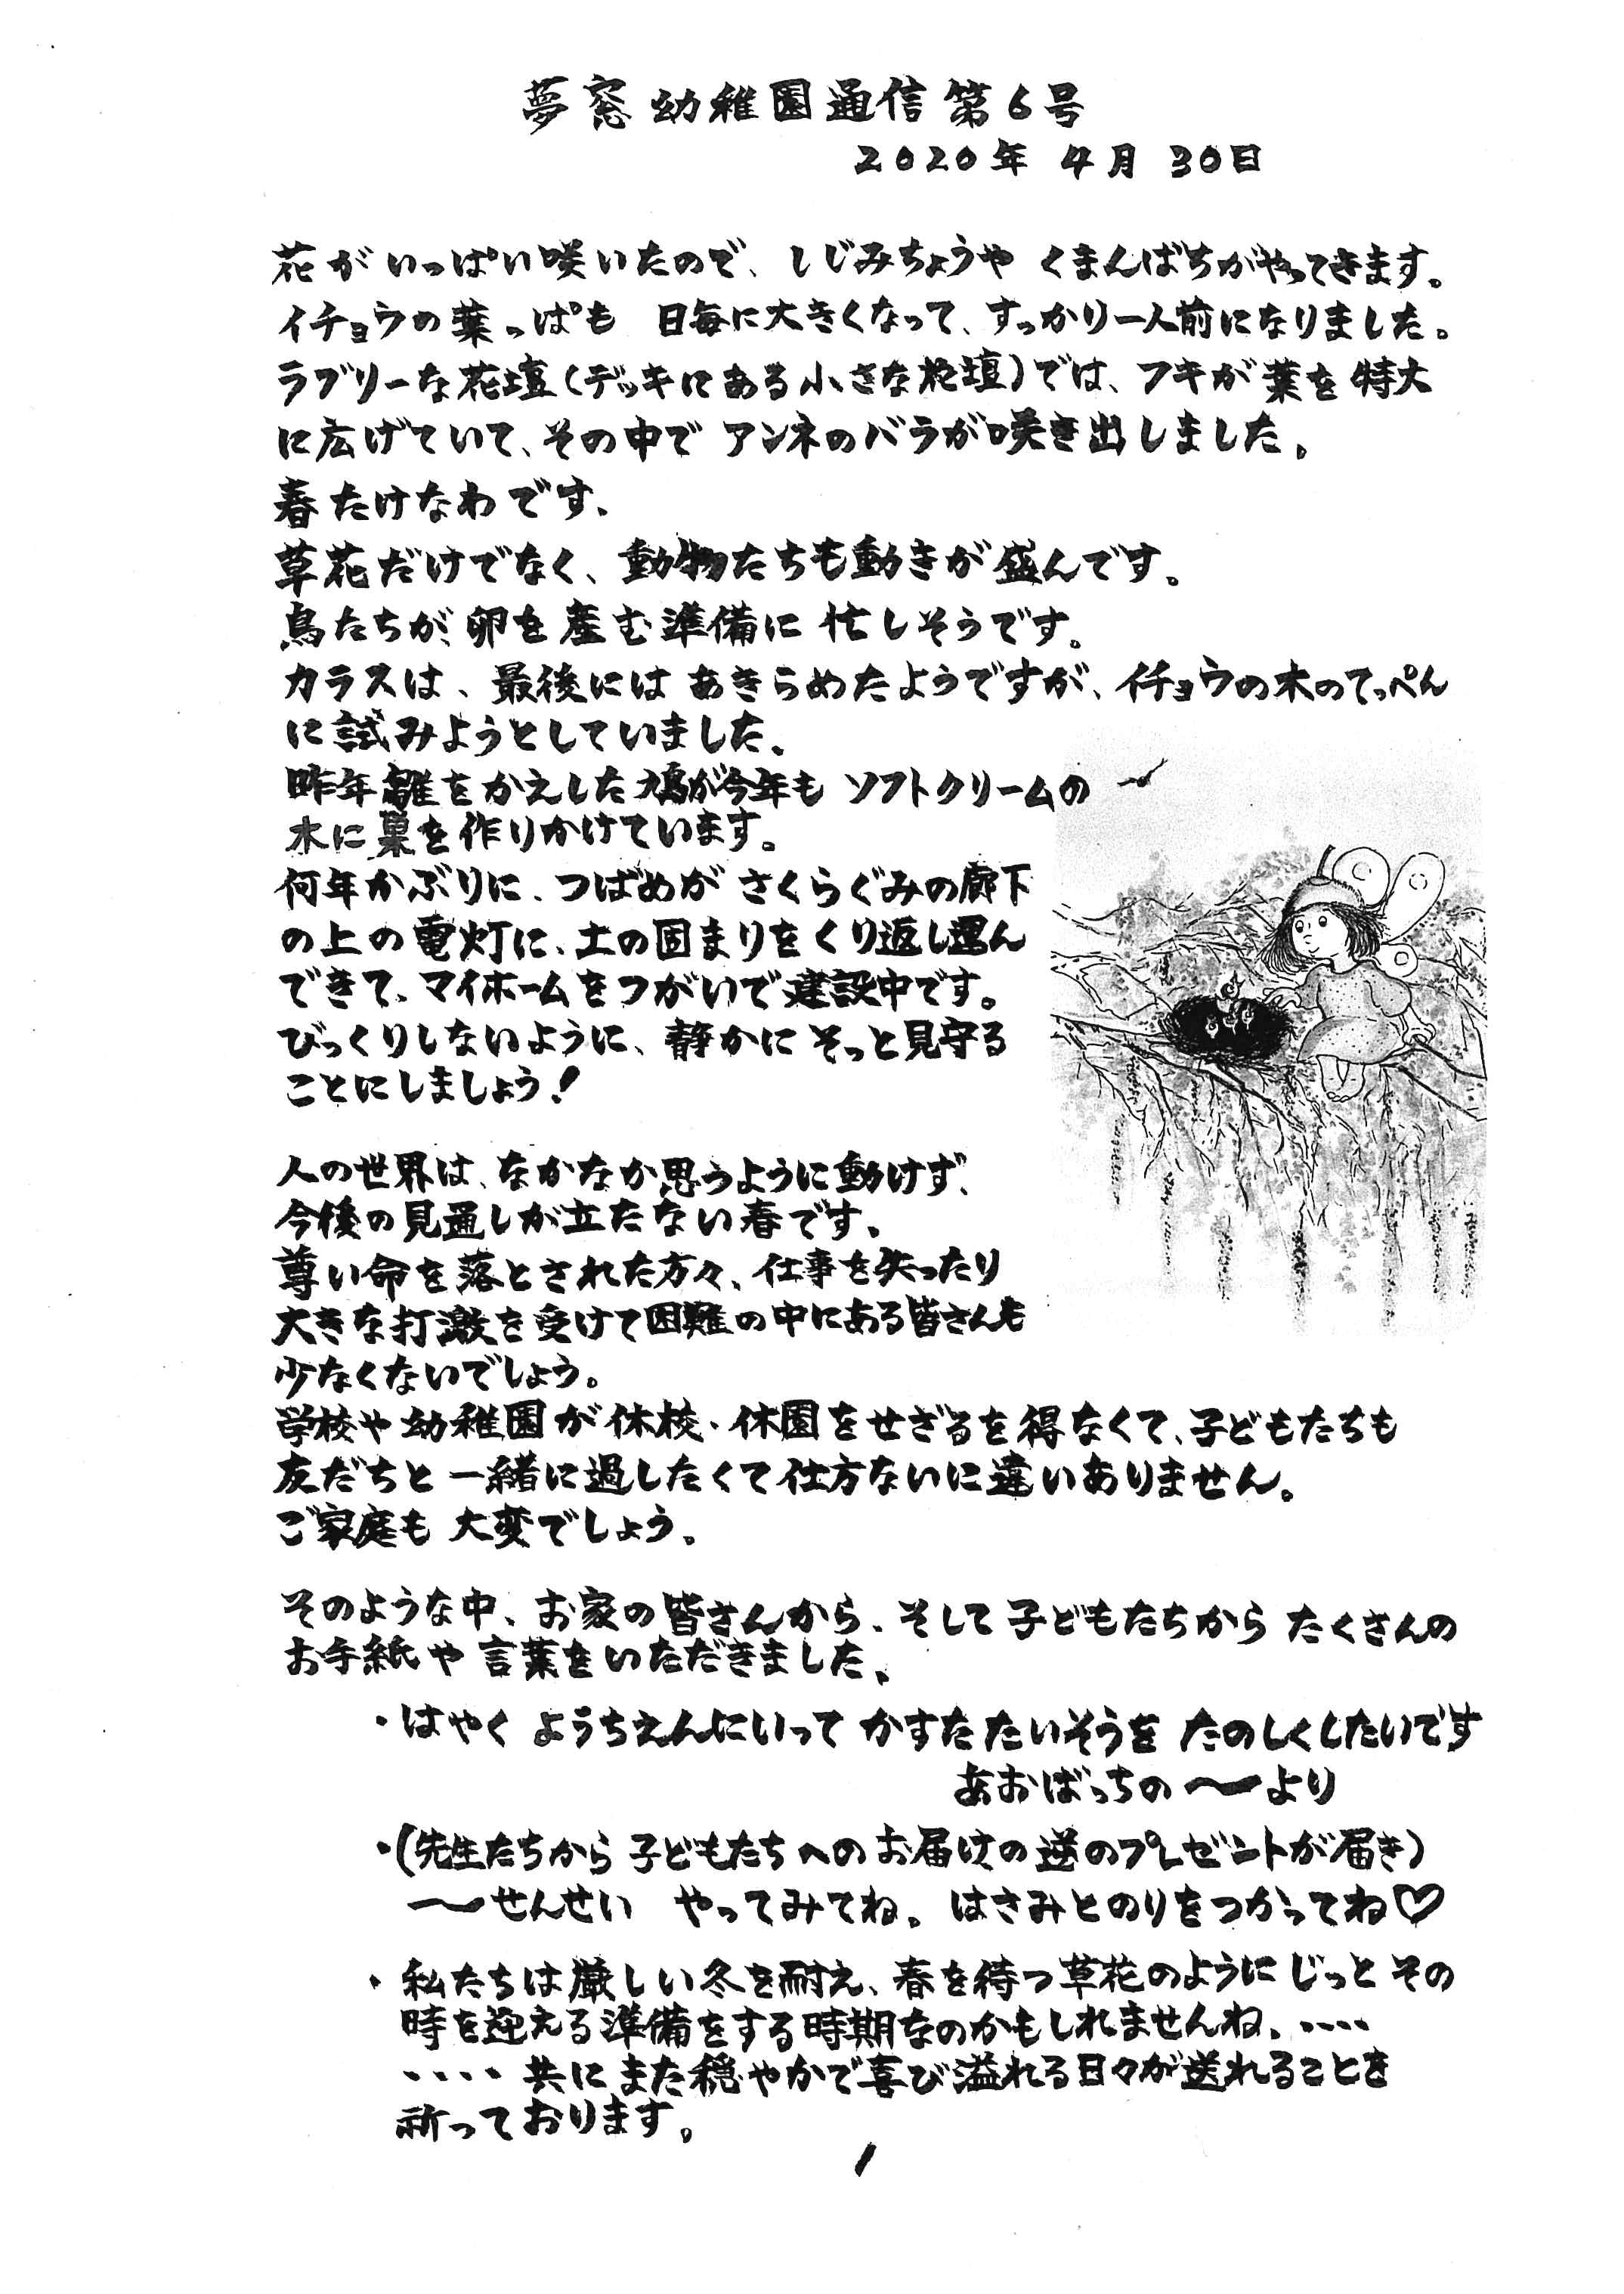 夢窓幼稚園通信第6号
2020年 4月 30日
花がいっぱい咲いたので、しじみちょうや くまんばちがやってきます。
イチョウの葉っぱも 日毎に大きくなって、すっかり一人前になりました。
ラブリーな花壇(デッキにある小さな花壇)では、フキが葉を特大
に広げていて、その中で アンネのバラが咲き出しました。
春たけなわです。
草花だけでなく、動物たちも動きが盛んです。
鳥たちが、卵を産む準備に 忙しそうです。
カラスは、最後には あきらめたようですが、イチョウの木のてっぺん
に試みようとしていました。
昨年雛をかえした鳩が今年も ソフトクリームの
木に巣を作りかけています。
何年かぶりに、つばめが さくらぐみの廊下
の上の電灯に、土の固まりをくり返し運ん
できて、マイホームをつがいで建設中です。
びっくりしないように、静かに そっと見守る
ことにしましょう!
人の世界は、なかなか思うように動けず、
今後の見通しが立たない春です。
尊い命を落とされた方々、仕事を失ったり
大きな打激を受けて困難の中にある皆さんも
少なくないでしょう。
学校や幼稚園が休校・休園をせざるを得なくて、子どもたちも
友だちと一緒に過したくて仕方ないに違いありません。
ご家庭も 大変でしょう。
そのような中、お家の皆さんから、そして子どもたちから たくさんの
お手紙や言葉をいただきました。
・はやく ようちえんにいって かすた たいそうを たのしくしたいです
あおばっちの 〜より
・(先生たちから 子どもたちへのお届けの逆のプレゼントが届き)
〜せんせい やってみてね。はさみとのりをつかってね♡
・私たちは厳しい冬を耐え、春を待つ草花のようにじっとその
時を迎える準備をする時期なのかもしれませんね。・・・・
・・・・共にまた穏やかで喜び溢れる日々が送れることを
祈っております。
1